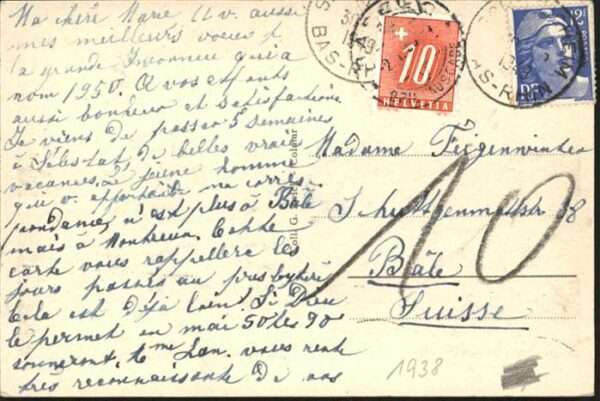 Ma chère Marie à v. aussi
mes meilleurs voeux p
la grande qui a
nom 1950. A vos enfants
aussi bonheur et satisfaction
Je viens de passer 5 semaines
à Sélestat, de belles vraies
vacances. Le jeune homme
qui v. apportait ma corres
pondance, n'est plus à Bâle
mais à Cette
carte vous rappellera les
jours passés au presbytère
Cela est déjà loin! Si Dieu
le permet en mai 50 les 90
sonneront. vous reste
très reconnaissante de vos
Madame Feigenwinter
Schützenmattstr 38
Bâle
Suisse
10
1938
+
10
HELVETIA
BAS-RHIN
BAS-RHIN